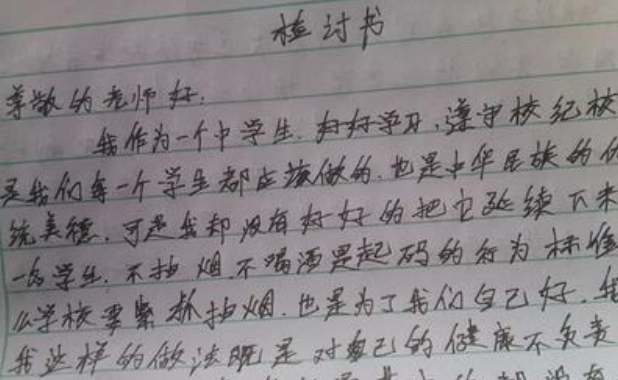 检讨书
尊敬的老师好:
我作为一个中学生.好好学习,遵守校纪校
是我们每一个学生都应该做的.也是中华民族的传
统美德.可是我却没有好好的把它延续下来
一名学生.不抽烟.不喝酒是起码的行为标准
么学校要紧抓抽烟.也是为了我们自己好.我
我这样的做法既是对自己的健康不负责